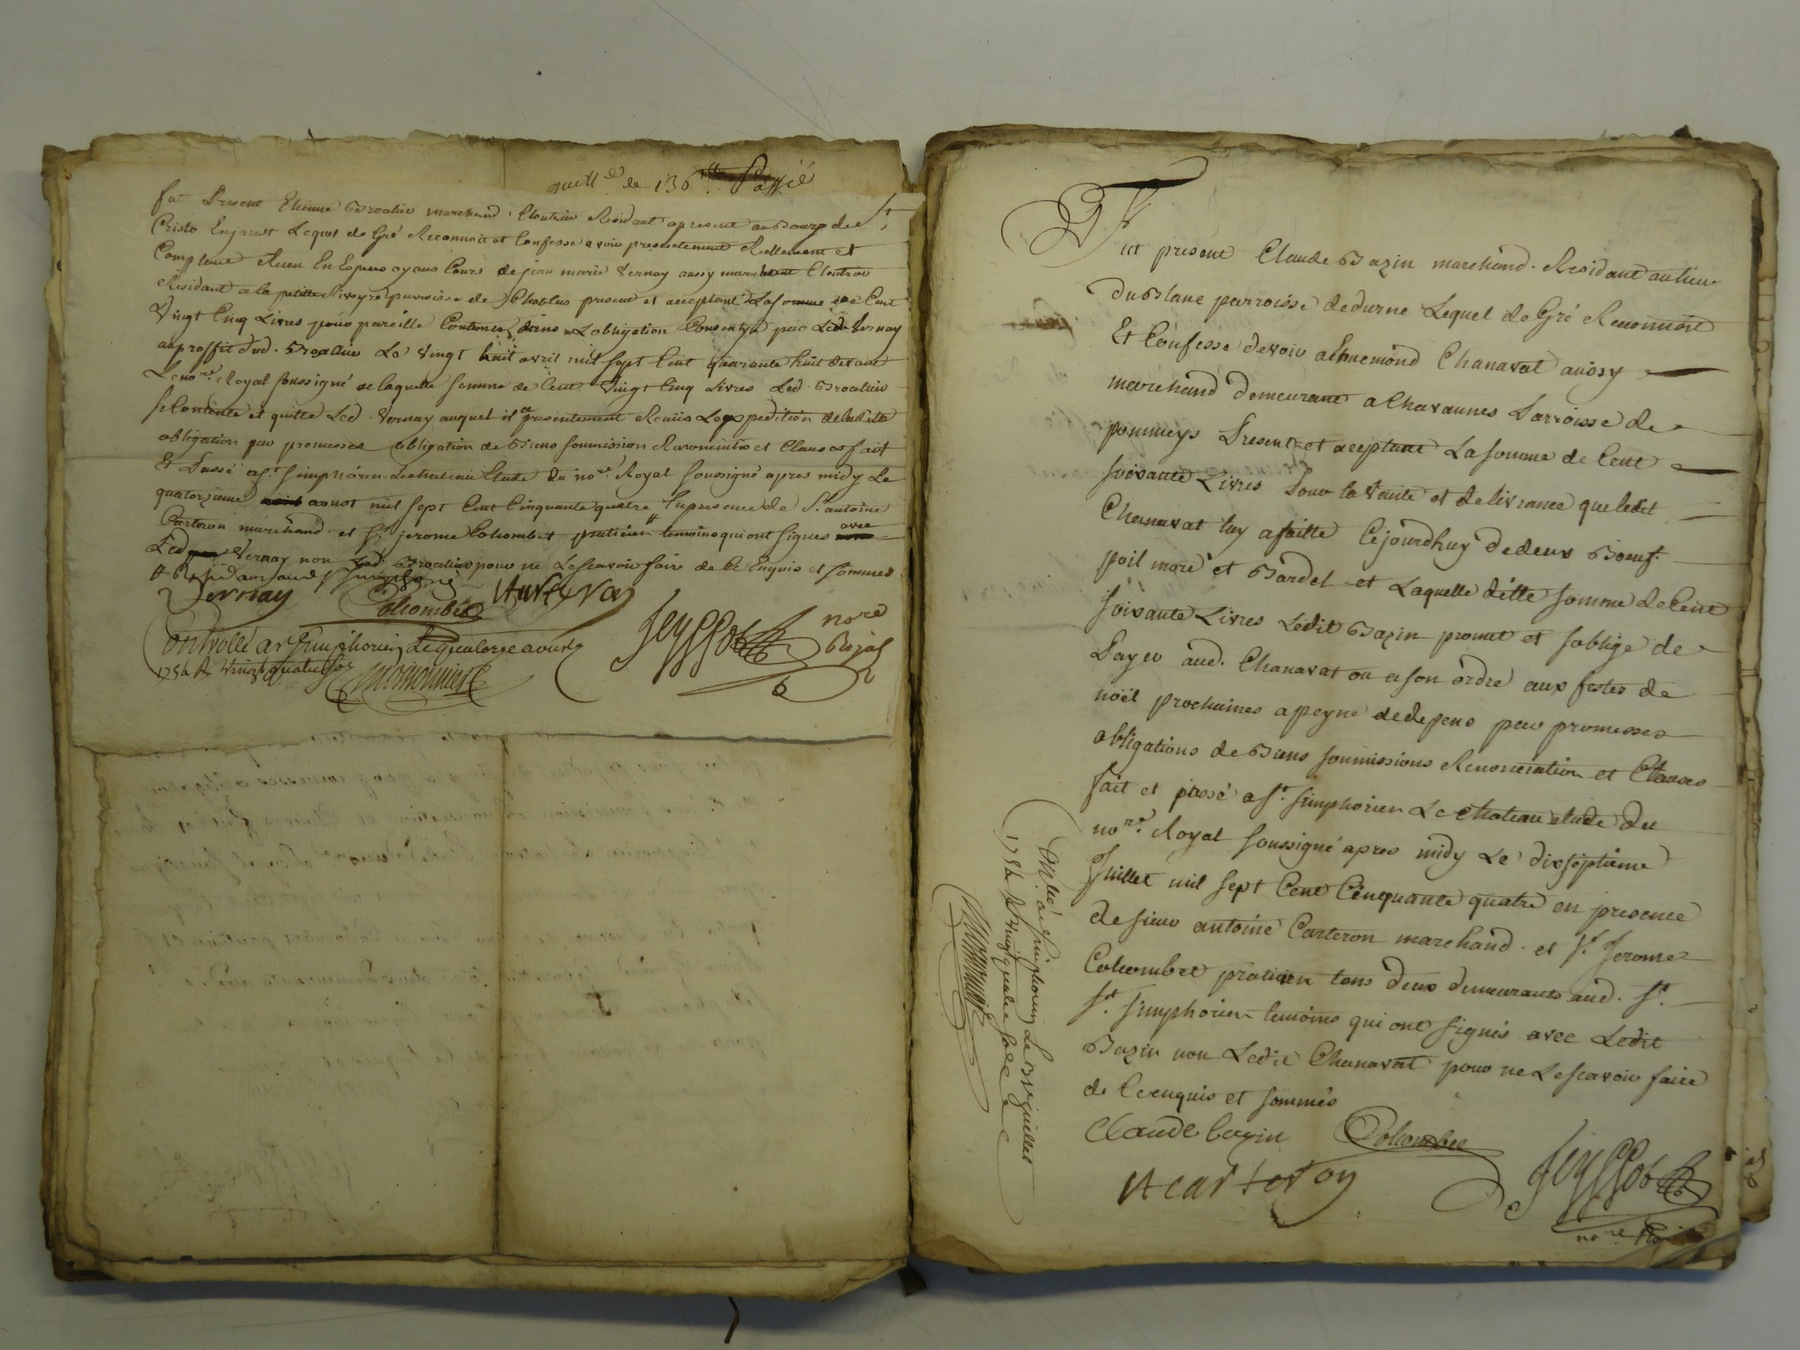 quitt.ce de 136 ₶
fut Present Etienne marchand Cloutier Residant apresent au Bourg de St
Cristo En jarest Lequel de Gré Reconnoit et Confesse avoir presentement Reellement et
Comptant Receu En Especes ayans Cours de jean marie Vernay aussy marchand Cloutier
Residant a la petite parroisse de Chatelus present et acceptant La somme de Cent
Vingt Cinq Livres pour pareille Contenue dans L'obligation Consentye par Led. Vernay
au proffit dud. Le Vingt huit avril mil sept Cent quarante huit devant
Le no.re Royal soussigné de laquelle somme de Cent Vingt Cinq Livres Led.
se Contente et quitte Led. Vernay auquel il a presentement Remis L'expedition de ladite
obligation par promesses obligation de Biens soumission Renonciation et Clauses fait
Et Passé a St. simphorien Le chateau Etude du no.re Royal soussigné apres midy Le
quatorzieme aoust mil sept Cent Cinquante quatre En presence de S. antoine
Carteron marchand et Sr. jerome Colombet praticien temoins qui ont signes avec
Led Vernay non Led pour ne Le scavoir faire de Ce Enquis et sommes
Residants aud St simphorien
Vernay Colombet A Carteron
no.re Royal
Controllé a St Simphorien Le quatorze aoust
1754 R Vingt quatre sols
Fut present Claude Bazin marchand Residant au lieu
du Blanc parroisse de durne Lequel de Gré Reconnoit
Et Confesse devoir a Ennemond Chanavat aussy
marchand demeurant a Chavannes Parroisse de
pommeys Present et acceptant La somme de Cent
soixante Livres Pour la Vente et delivrance que ledit
Chanavat luy a faitte Cejourdhuy de deux Boeufs
poil more et Bardel et Laquelle ditte somme de Cent
soixante Livres Ledit Bazin promet et s'oblige de
Payer aud. Chanavat ou a son ordre aux festes de
noël prochaines a peyne de depens par promesses
obligations de Biens soumissions Renonciation et Clauses
fait et passé a St. simphorien Le chateau etude du
no.re Royal soussigné apres midy Le dixseptieme
Juillet mil sept Cent Cinquante quatre en presence
de sieur antoine Carteron marchand et Sr. Jerome
Colombet praticien tous deux demeurants aud. St.
St. simphorien temoins qui ont signés avec Ledit
Bazin non Ledit Chanavat pour ne Le scavoir faire
de Ce enquis et sommés
Claude bazin Colombet
A carteron
no.re
a St Simphorien Le juillet
1754 R Vingt quatre sols